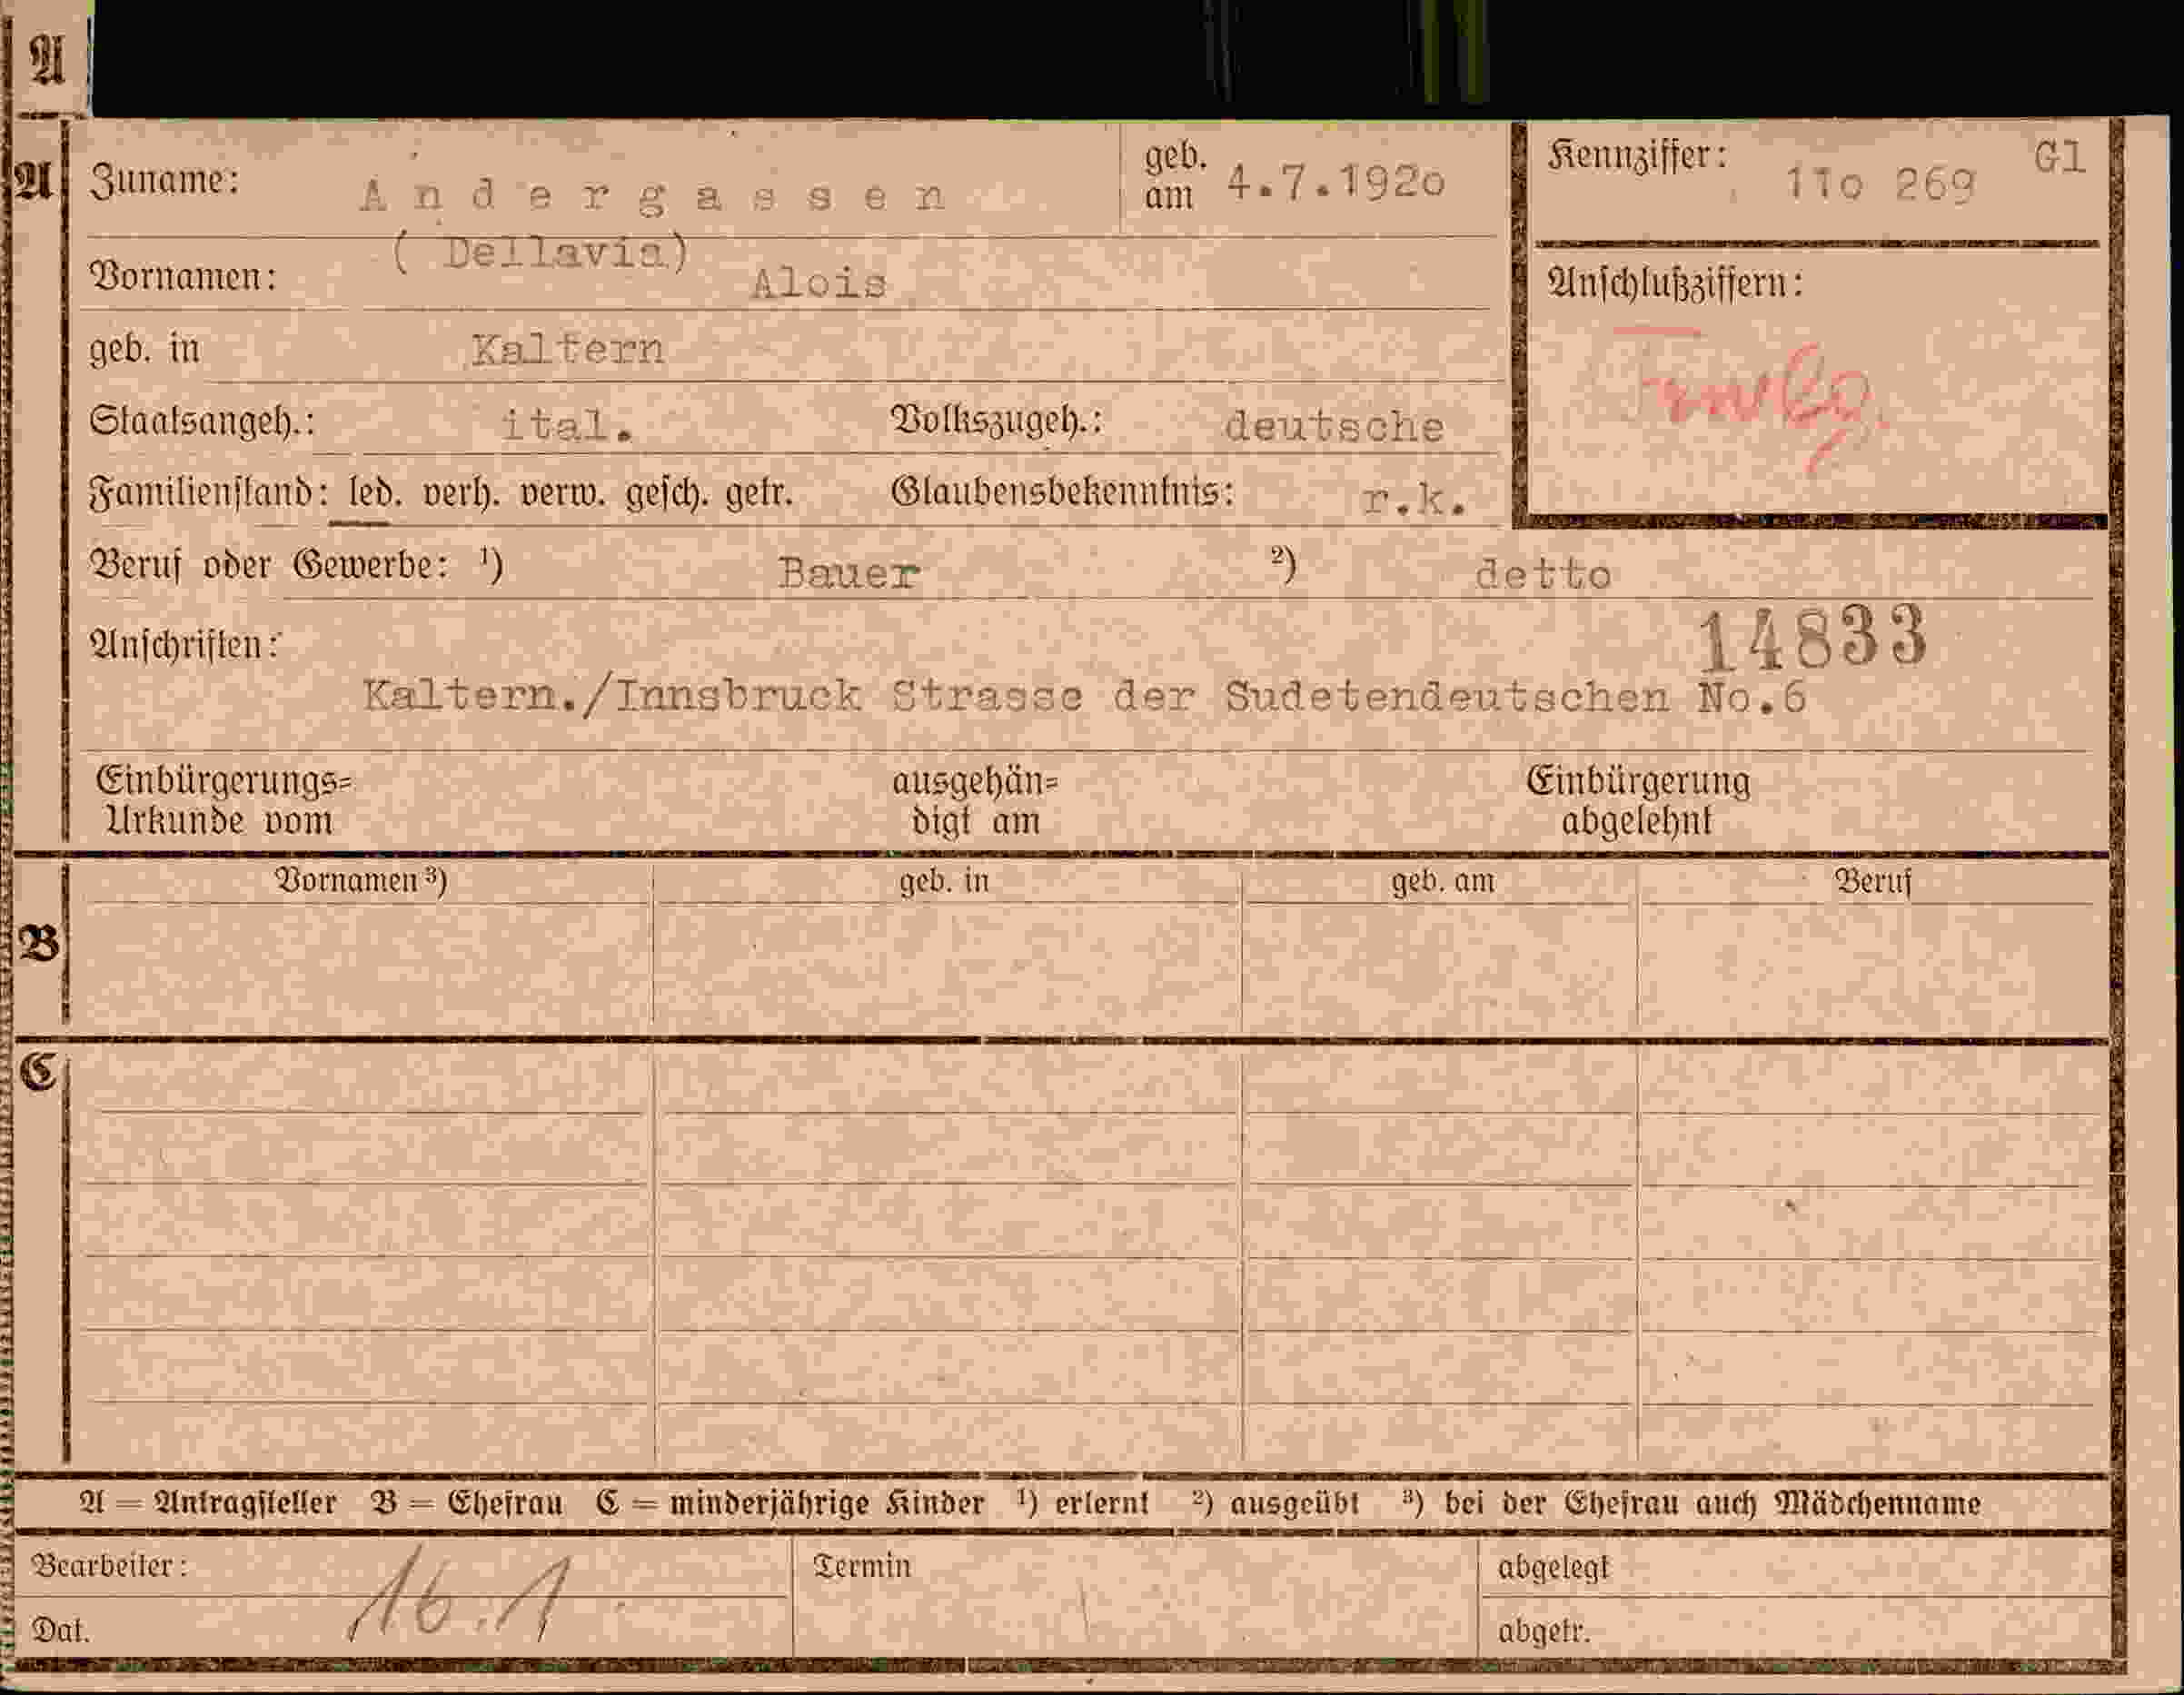 A
A Zuname: Andergassen geb. am 4.7.192o Kennziffer: 11o 269 Gl
( Dellavia)
Vornamen: Alois Anschlußziffern:
geb. in Kaltern
Staatsangeh.: ital. Volkszugeh.: deutsche
Familienstand: led. verh. verw. gesch. getr. Glaubensbekenntnis: r.k.
Beruf oder Gewerbe: ¹) Bauer ²) detto
Anschriften: 14833
Kaltern./Innsbruck Strasse der Sudetendeutschen No.6
Einbürgerungs= ausgehän= Einbürgerung
Urkunde vom digt am abgelehnt
Vornamen ³) geb. in geb. am Beruf
B
C
A = Antragsteller B = Ehefrau C = minderjährige Kinder ¹) erlernt ²) ausgeübt ³) bei der Ehefrau auch Mädchenname
Bearbeiter: 16.1 Termin abgelegt
Dat. abgetr.